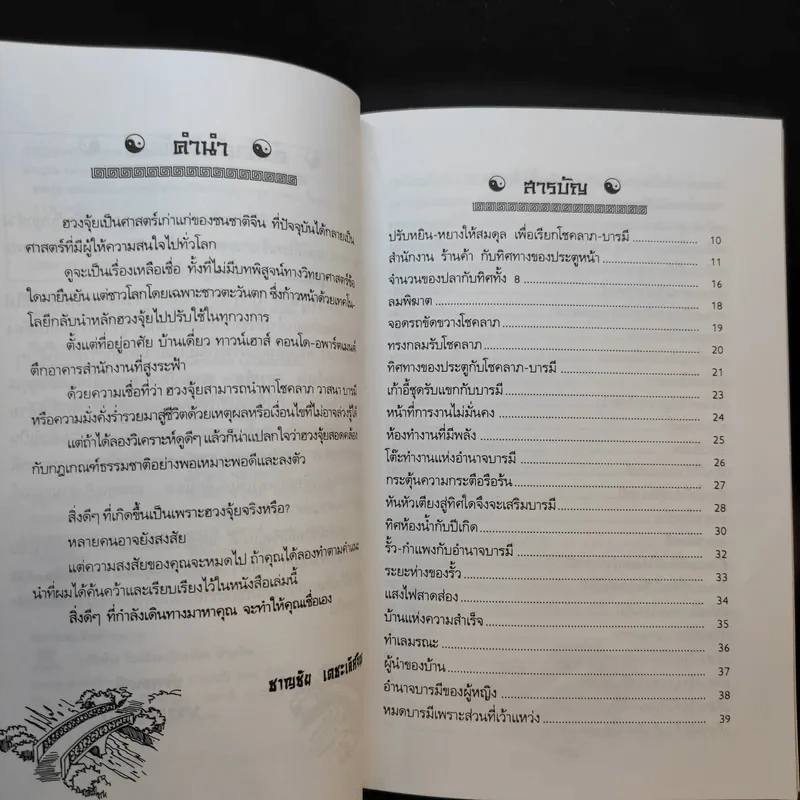 คำนำ
ฮวงจุ้ยเป็นศาสตร์เก่าแก่ของชนชาติจีน ที่ปัจจุบันได้กลายเป็น
ศาสตร์ที่มีผู้ให้ความสนใจไปทั่วโลก
ดูจะเป็นเรื่องเหลือเชื่อ ทั้งที่ไม่มีบทพิสูจน์ทางวิทยาศาสตร์ข้อ
ใดมายืนยัน แต่ชาวโลกโดยเฉพาะชาวตะวันตก ซึ่งก้าวหน้าด้วยเทคโน-
โลยีกลับนำหลักฮวงจุ้ยไปปรับใช้ในทุกวงการ
ตั้งแต่ที่อยู่อาศัย บ้านเดี่ยว ทาวน์เฮาส์ คอนโด-อพาร์ตเมนต์
ตึกอาคารสำนักงานที่สูงระฟ้า
ด้วยความเชื่อที่ว่า ฮวงจุ้ยสามารถนำพาโชคลาภ วาสนา บารมี
หรือความมั่งคั่งร่ำรวยมาสู่ชีวิตด้วยเหตุผลหรือเงื่อนไขที่ไม่อาจล่วงรู้ได้
แต่ถ้าได้ลองวิเคราะห์ดูดีๆ แล้วก็น่าแปลกใจว่าฮวงจุ้ยสอดคล้อง
กับกฎเกณฑ์ธรรมชาติอย่างพอเหมาะพอดีและลงตัว
สิ่งดีๆ ที่เกิดขึ้นเป็นเพราะฮวงจุ้ยจริงหรือ?
หลายคนอาจยังสงสัย
แต่ความสงสัยของคุณจะหมดไป ถ้าคุณได้ลองทำตามคำแนะ
นำที่ผมได้ค้นคว้าและเรียบเรียงไว้ในหนังสือเล่มนี้
สิ่งดีๆ ที่กำลังเดินทางมาหาคุณ จะทำให้คุณเชื่อเอง
ชาญชัย
สารบัญ
ปรับหยิน-หยางให้สมดุล เพื่อเรียกโชคลาภ-บารมี 10
สำนักงาน ร้านค้า กับทิศทางของประตูหน้า 11
จำนวนของปลากับทิศทั้ง 8 16
ลมพิฆาต 18
จอดรถขัดขวางโชคลาภ 19
ทรงกลมรับโชคลาภ 20
ทิศทางของประตูกับโชคลาภ-บารมี 21
เก้าอี้ชุดรับแขกกับบารมี 23
หน้าที่การงานไม่มั่นคง 24
ห้องทำงานที่มีพลัง 25
โต๊ะทำงานแห่งอำนาจบารมี 26
กระตุ้นความกระตือรือร้น 27
หันหัวเตียงสู่ทิศใดจึงจะเสริมบารมี 28
ทิศห้องน้ำกับปีเกิด 30
รั้ว-กำแพงกับอำนาจบารมี 32
ระยะห่างของรั้ว 33
แสงไฟสาดส่อง 34
บ้านแห่งความสำเร็จ 35
ทำเลมรณะ 36
ผู้นำของบ้าน 37
อำนาจบารมีของผู้หญิง 38
หมดบารมีเพราะส่วนที่เว้าแหว่ง 39